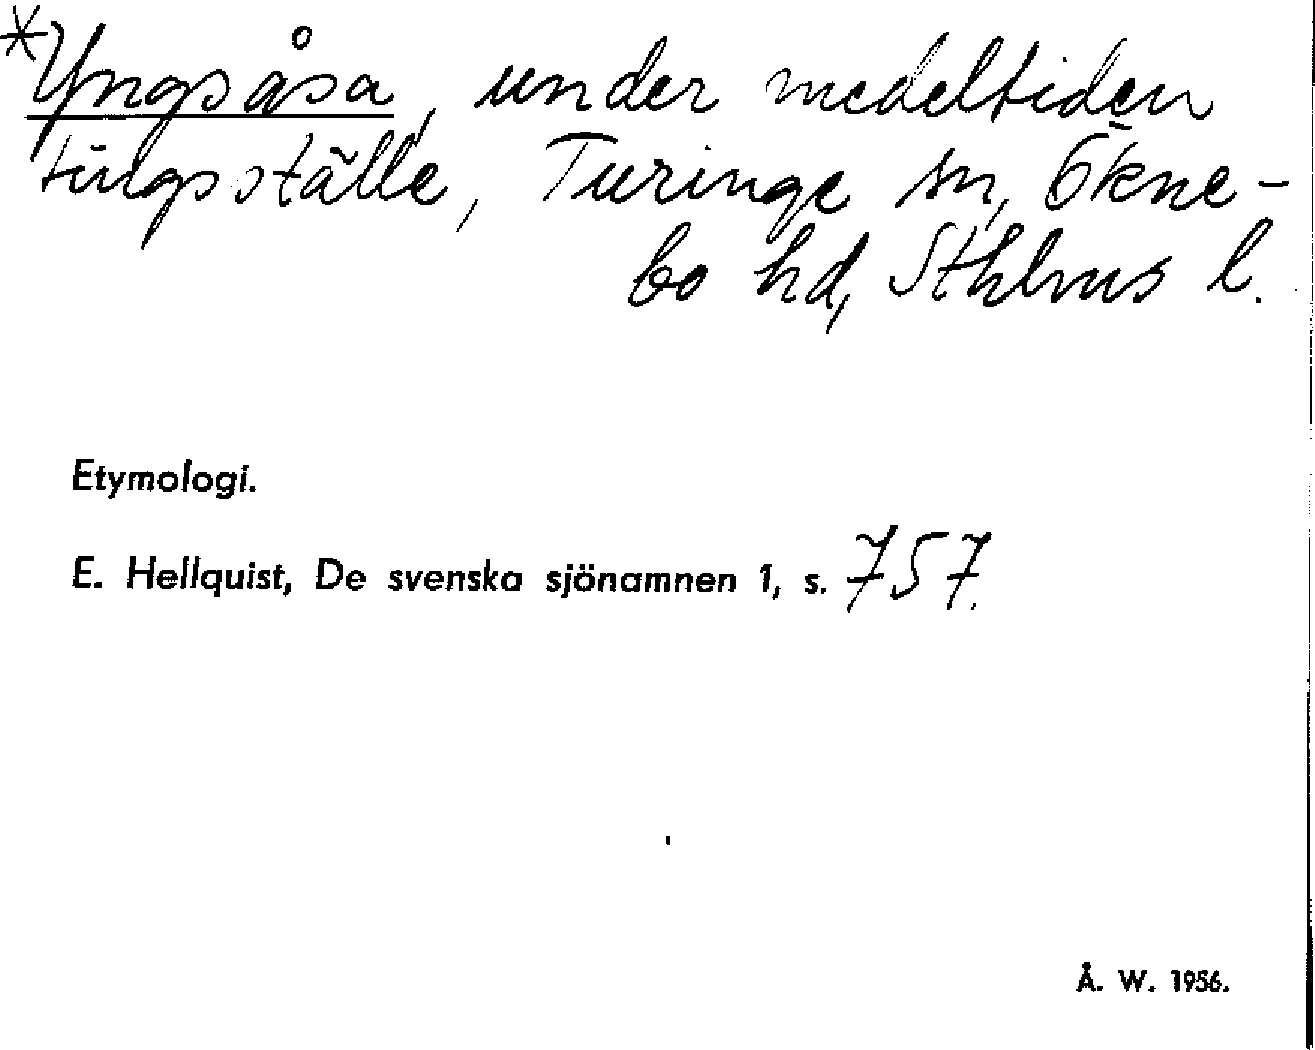 *Yngsåsa, under medeltiden
tingsställe, Turinge sn, Ökne-
bo hd, Sthlms l.
Etymologi.
E. Hellquist, De svenska sjönamnen 1, s. 757.
Å. W. 1956.